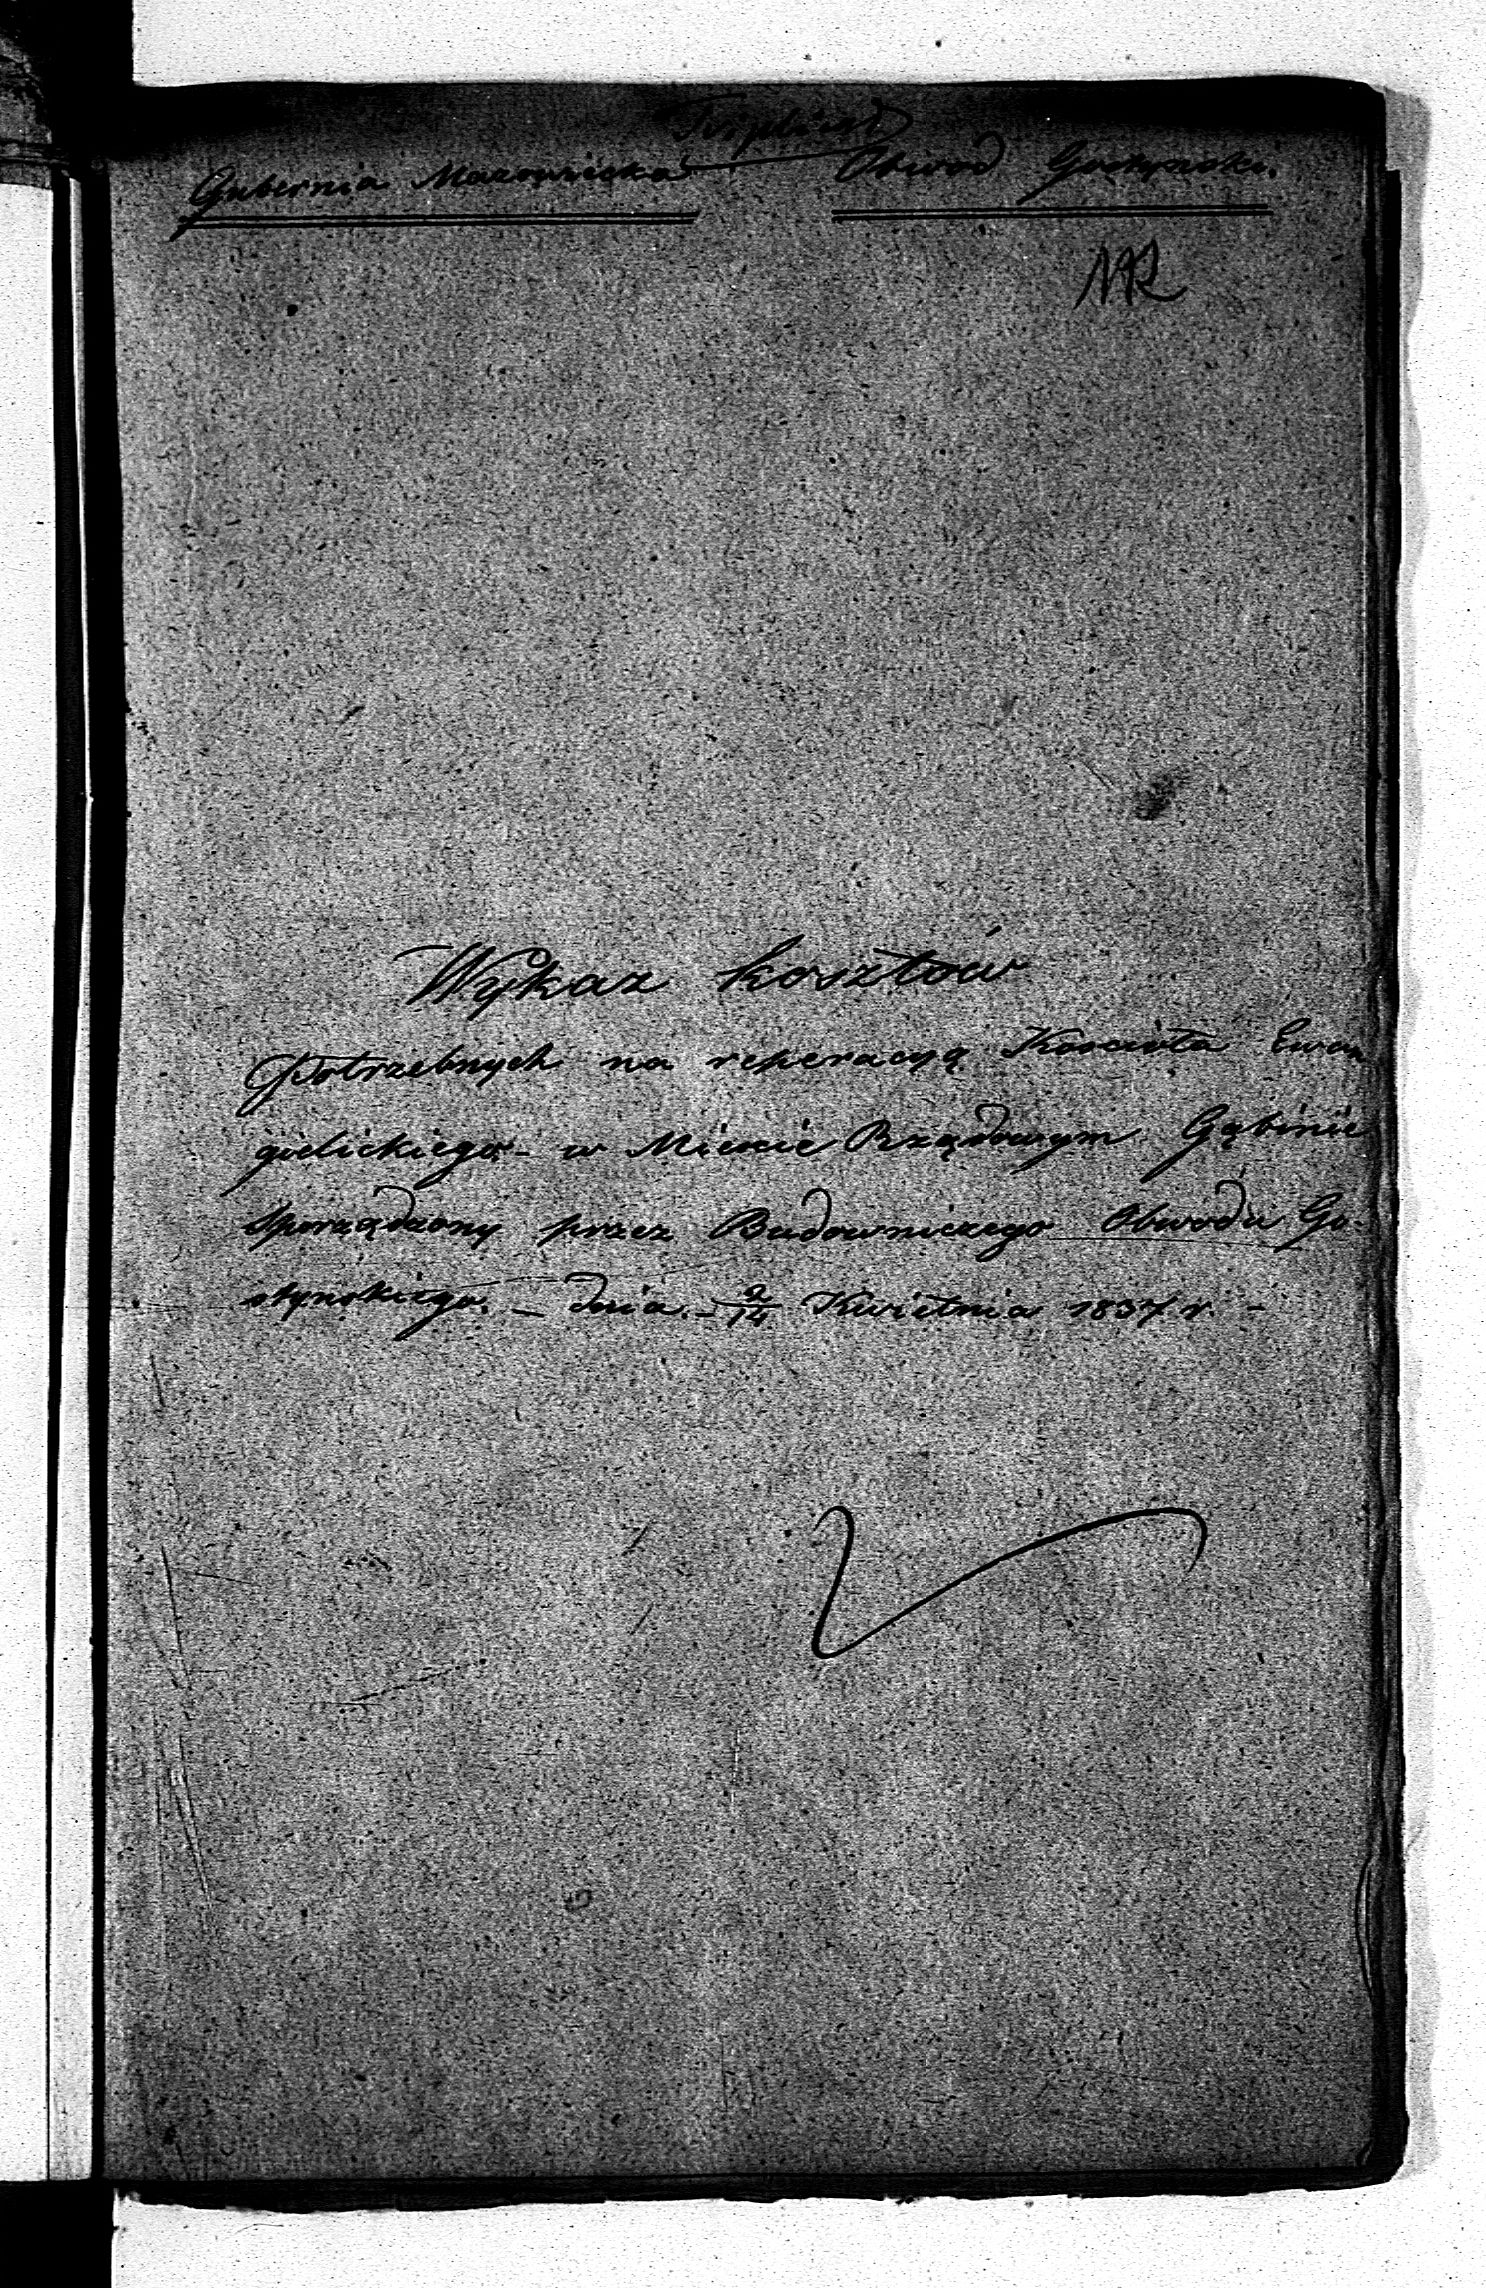 Triplicat
Gubernia Mazowiecka Obwod Gostynski.
Wykaz kosztów
Potrzebnych na reperacyą Kościoła Ewan
gielickiego - w Mieście Rządowym Gąbinie
sporządzony przez Budowniczego Obwodu Go-
stynskiego. - dnia - 2/14 Kwietnia 1837 r. -